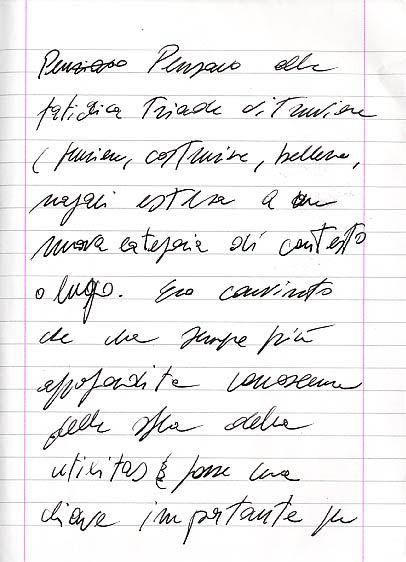 Pensavo Pensavo alla
fatidica Triade vitruviana
(funzione, costruzione, bellezza,
magari estesa a una
nuova categoria di contesto
o luogo. Ero convinto
che una sempre più
approfondita conoscenza
della sfera della
utilitas fosse una
chiave importante per